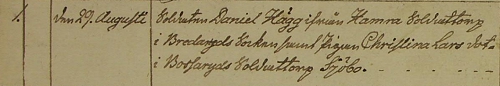 1. den 29. Augusti Soldaten Daniel Hägg ifrån Hamra Soldattorp
i Bredaryds Socken samt Pigan Christina Lars dott.
i Bosaryds Soldattorp Sjöbo.